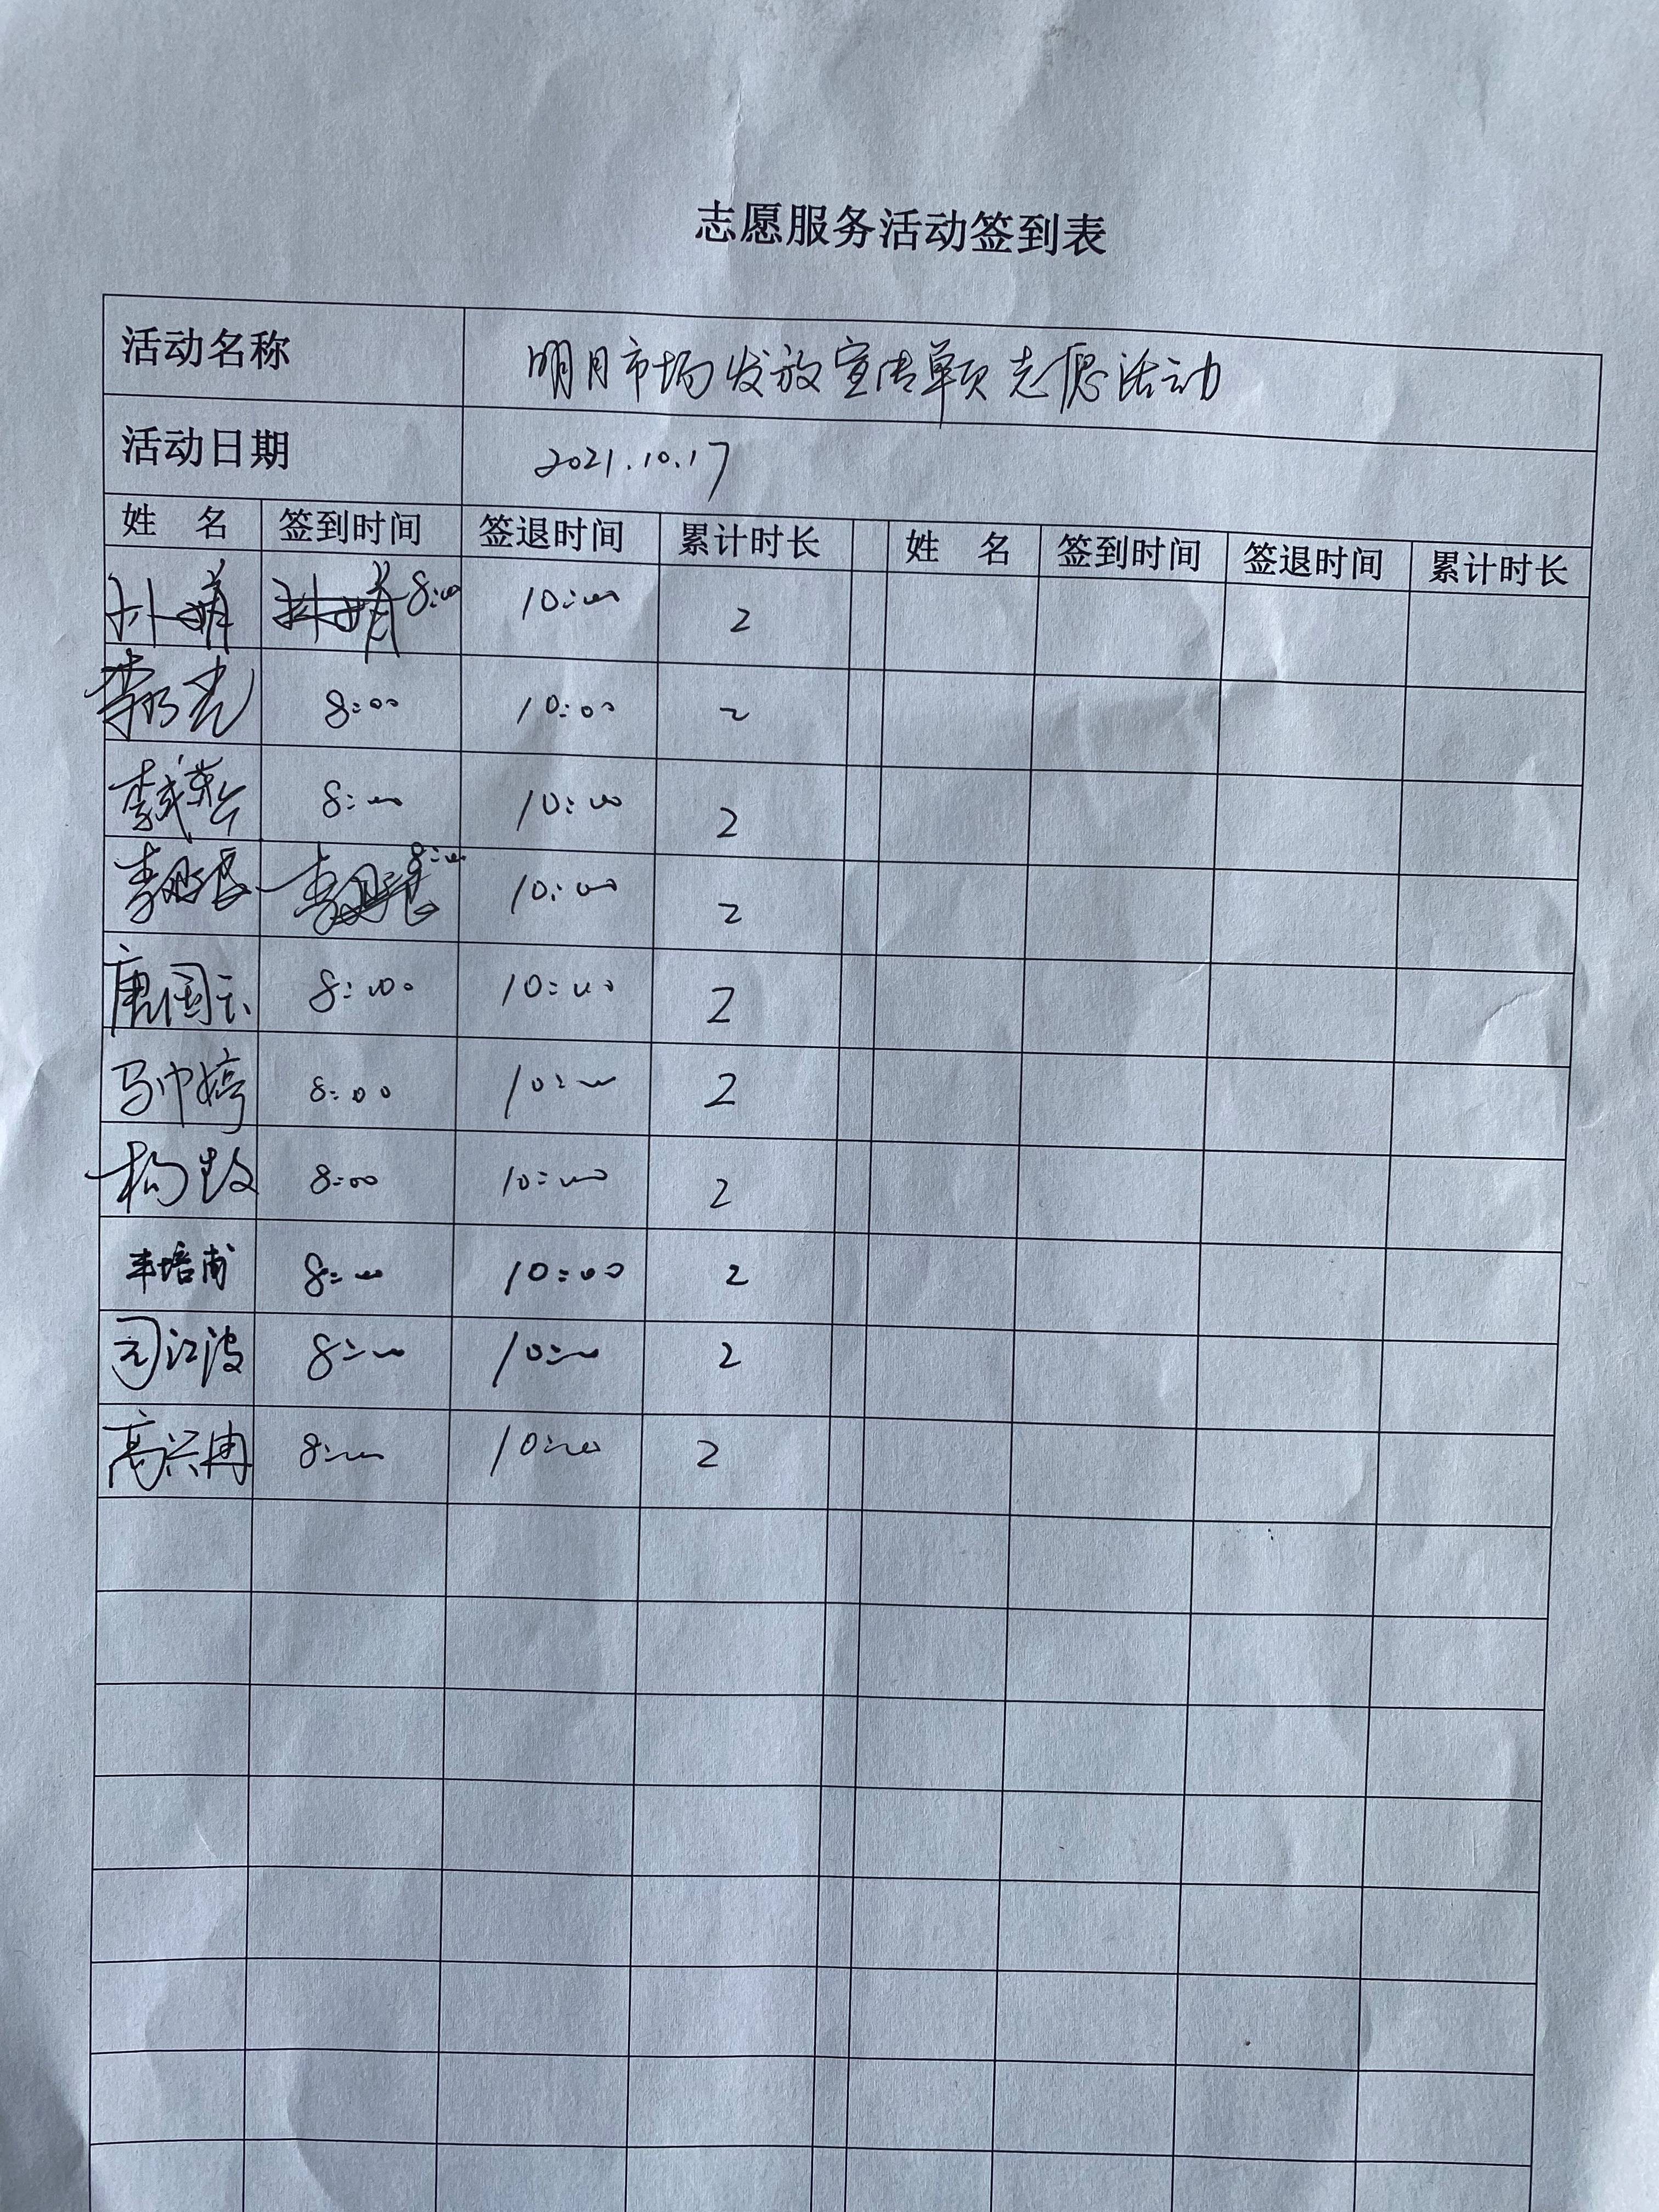 志愿服务活动签到表
活动名称 明月市场发放宣传单页志愿活动
活动日期 2021.10.17
姓 名 签到时间 签退时间 累计时长 姓 名 签到时间 签退时间 累计时长
8:00 10:00 2
8:00 10:00 2
8:00 10:00 2
8:00 10:00 2
唐国云 8:00 10:00 2
马巾婷 8:00 10:00 2
8:00 10:00 2
丰培甫 8:00 10:00 2
司江波 8:00 10:00 2
高兴冉 8:00 10:00 2